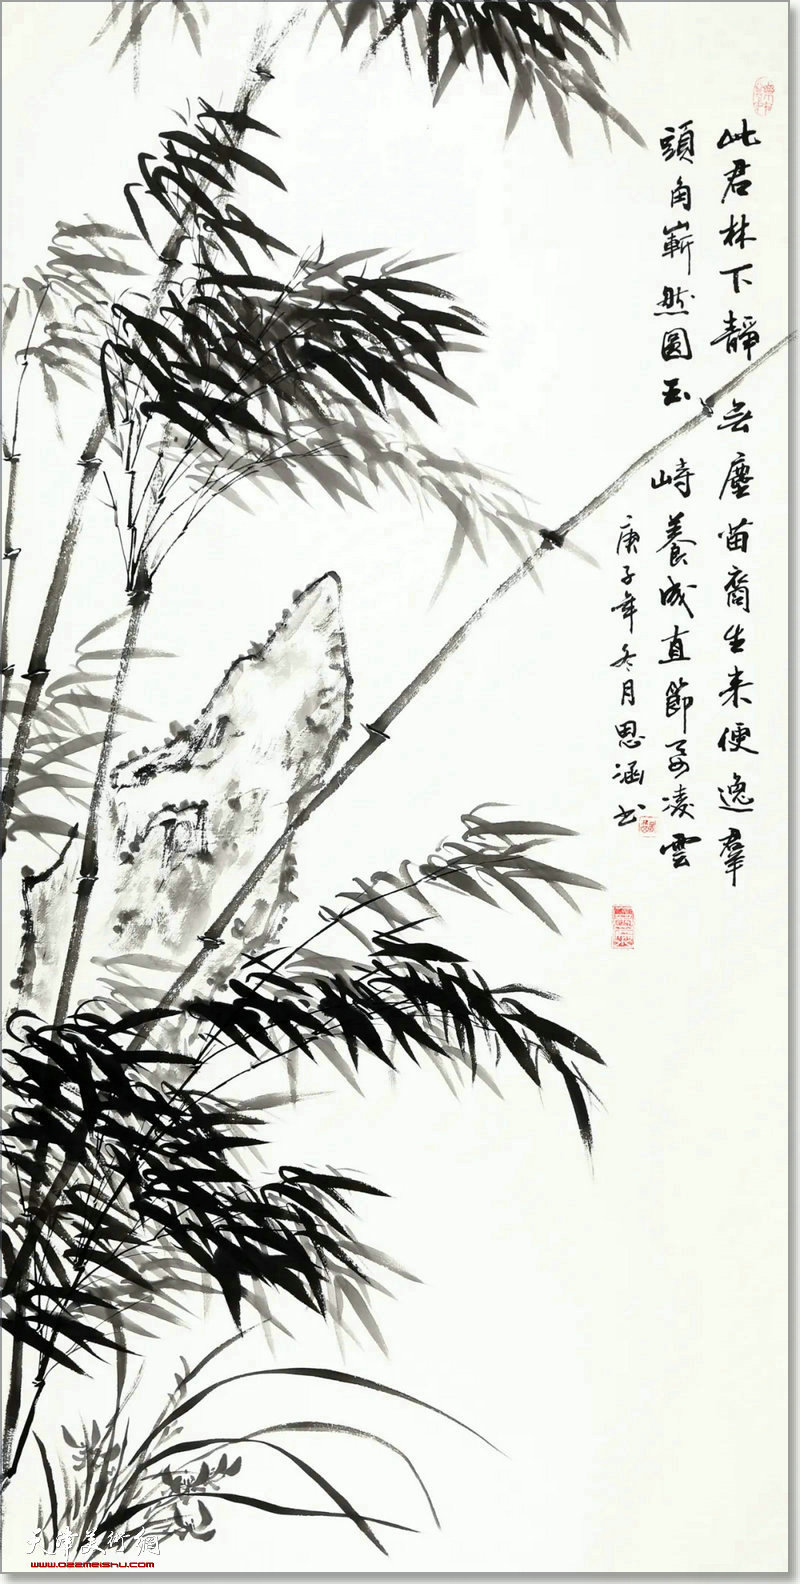 此君林下靜無塵苗裔生来便逸羣
頭角嶄然圓玉峙養成直節要凌雲
庚子年冬月思涵书
天津美术網
www.022meishu.com